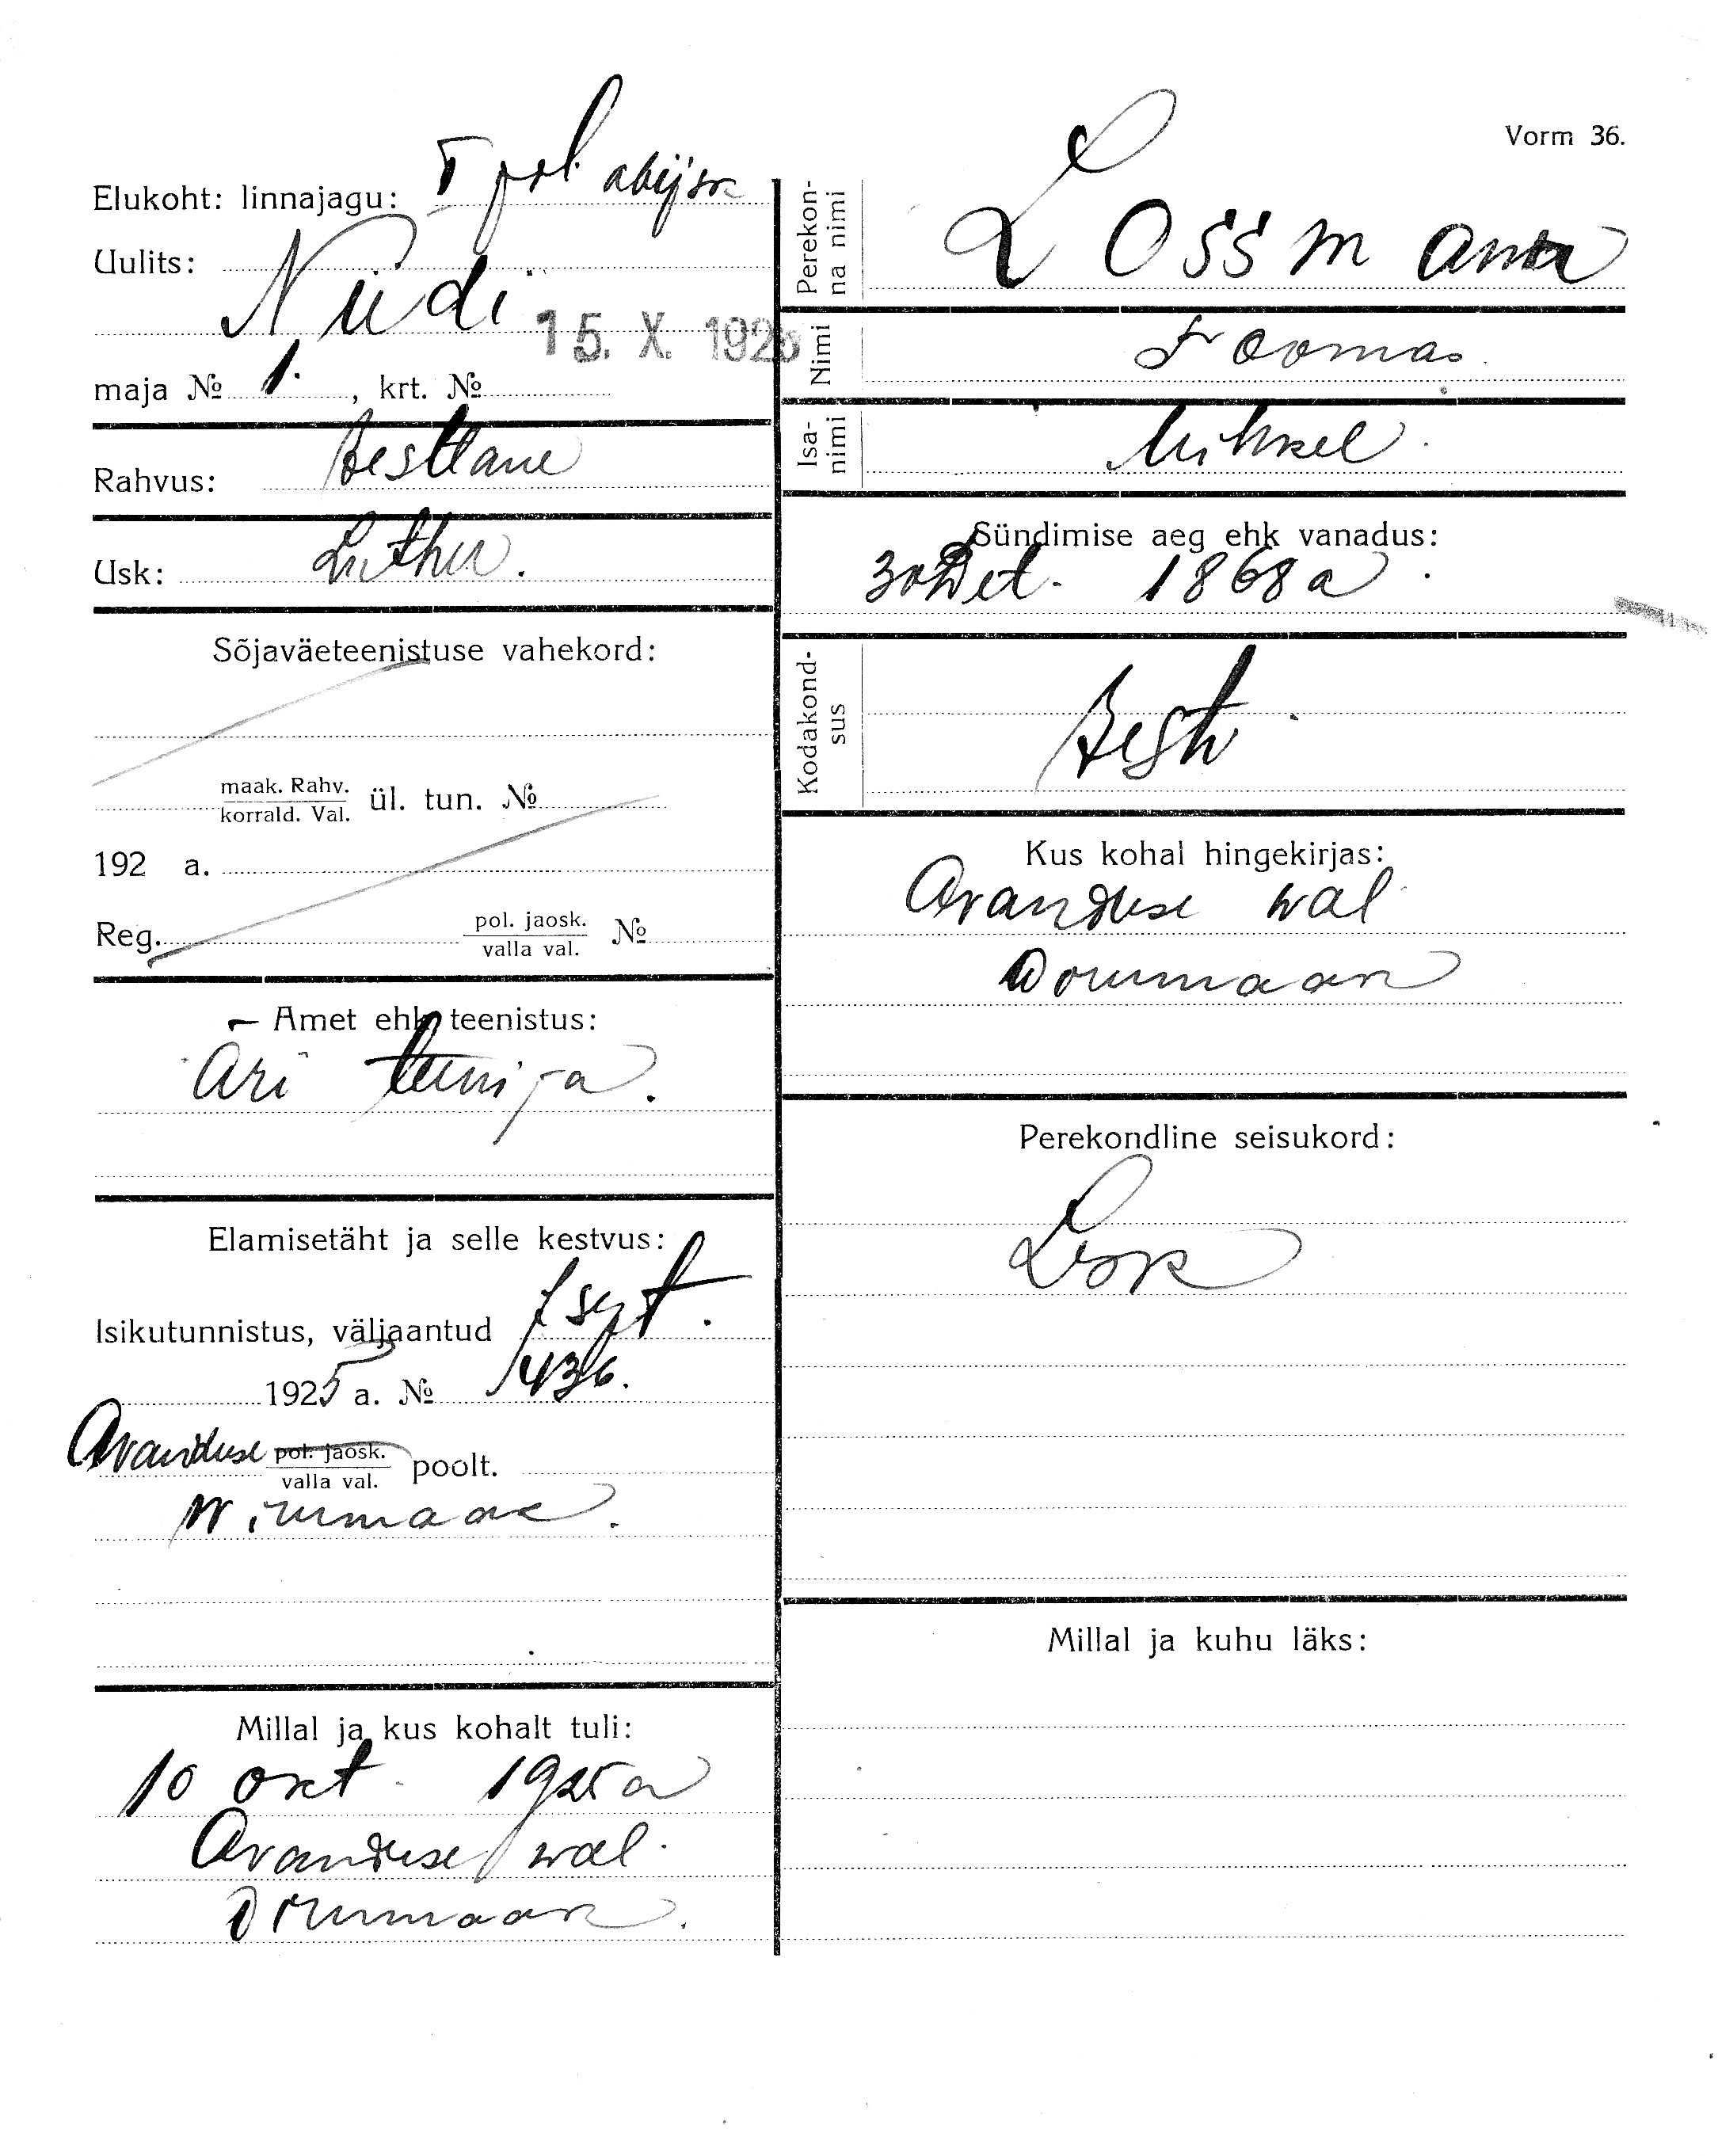 Vorm 36.
Elukoht: linnajagu: I pol abijsk
Uulits:
Nüdi
15. X. 1925
maja № 1. , krt. №
Rahvus: Eestlane
Usk: Luther.
Sõjaväeteenistuse vahekord:
maak. Rahv.
korrald. Val. ül. tun. №
192 a.
Reg. pol. jaosk.
valla val. №
Amet ehk teenistus:
Äri teenija.
Elamisetäht ja selle kestvus:
Isikutunnistus, väljaantud 7 sept.
1925 a. № 1436.
Avanduse pol. jaosk.
valla val. poolt.
Wirumaak.
Millal ja kus kohalt tuli:
10 okt. 1925 a
Avanduse wal.
Wirumaak.
Perekon-
na nimi Lossmann
Nimi Toomas
Isa-
nimi Mihkel
Sündimise aeg ehk vanadus:
30 Det. 1868 a.
Kodakond-
sus Eesti
Kus kohal hingekirjas:
Avanduse wal
Wirumaak
Perekondline seisukord:
Lesk
Millal ja kuhu läks: